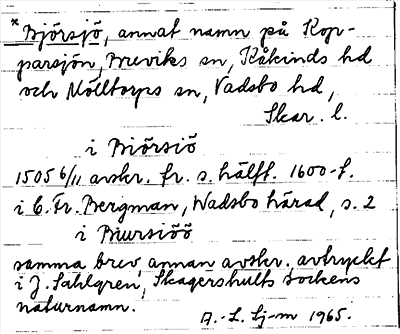 *Björsjö, annat namn på Kop-
parsjön, Breviks sn, Kåkinds hd
och Mölltorps sn, Vadsbo hd,
Skar. l.
i Biörsiö
1505 6/11 avskr. fr. s. hälft. 1600-t.
i C. Fr. Bergman, Wadsbo härad, s. 2
i Biursiöö
samma brev, annan avskr. avtryckt
i J. Sahlgren, Skagershults sockens
naturnamn.
A.-L. Lj-m 1965.